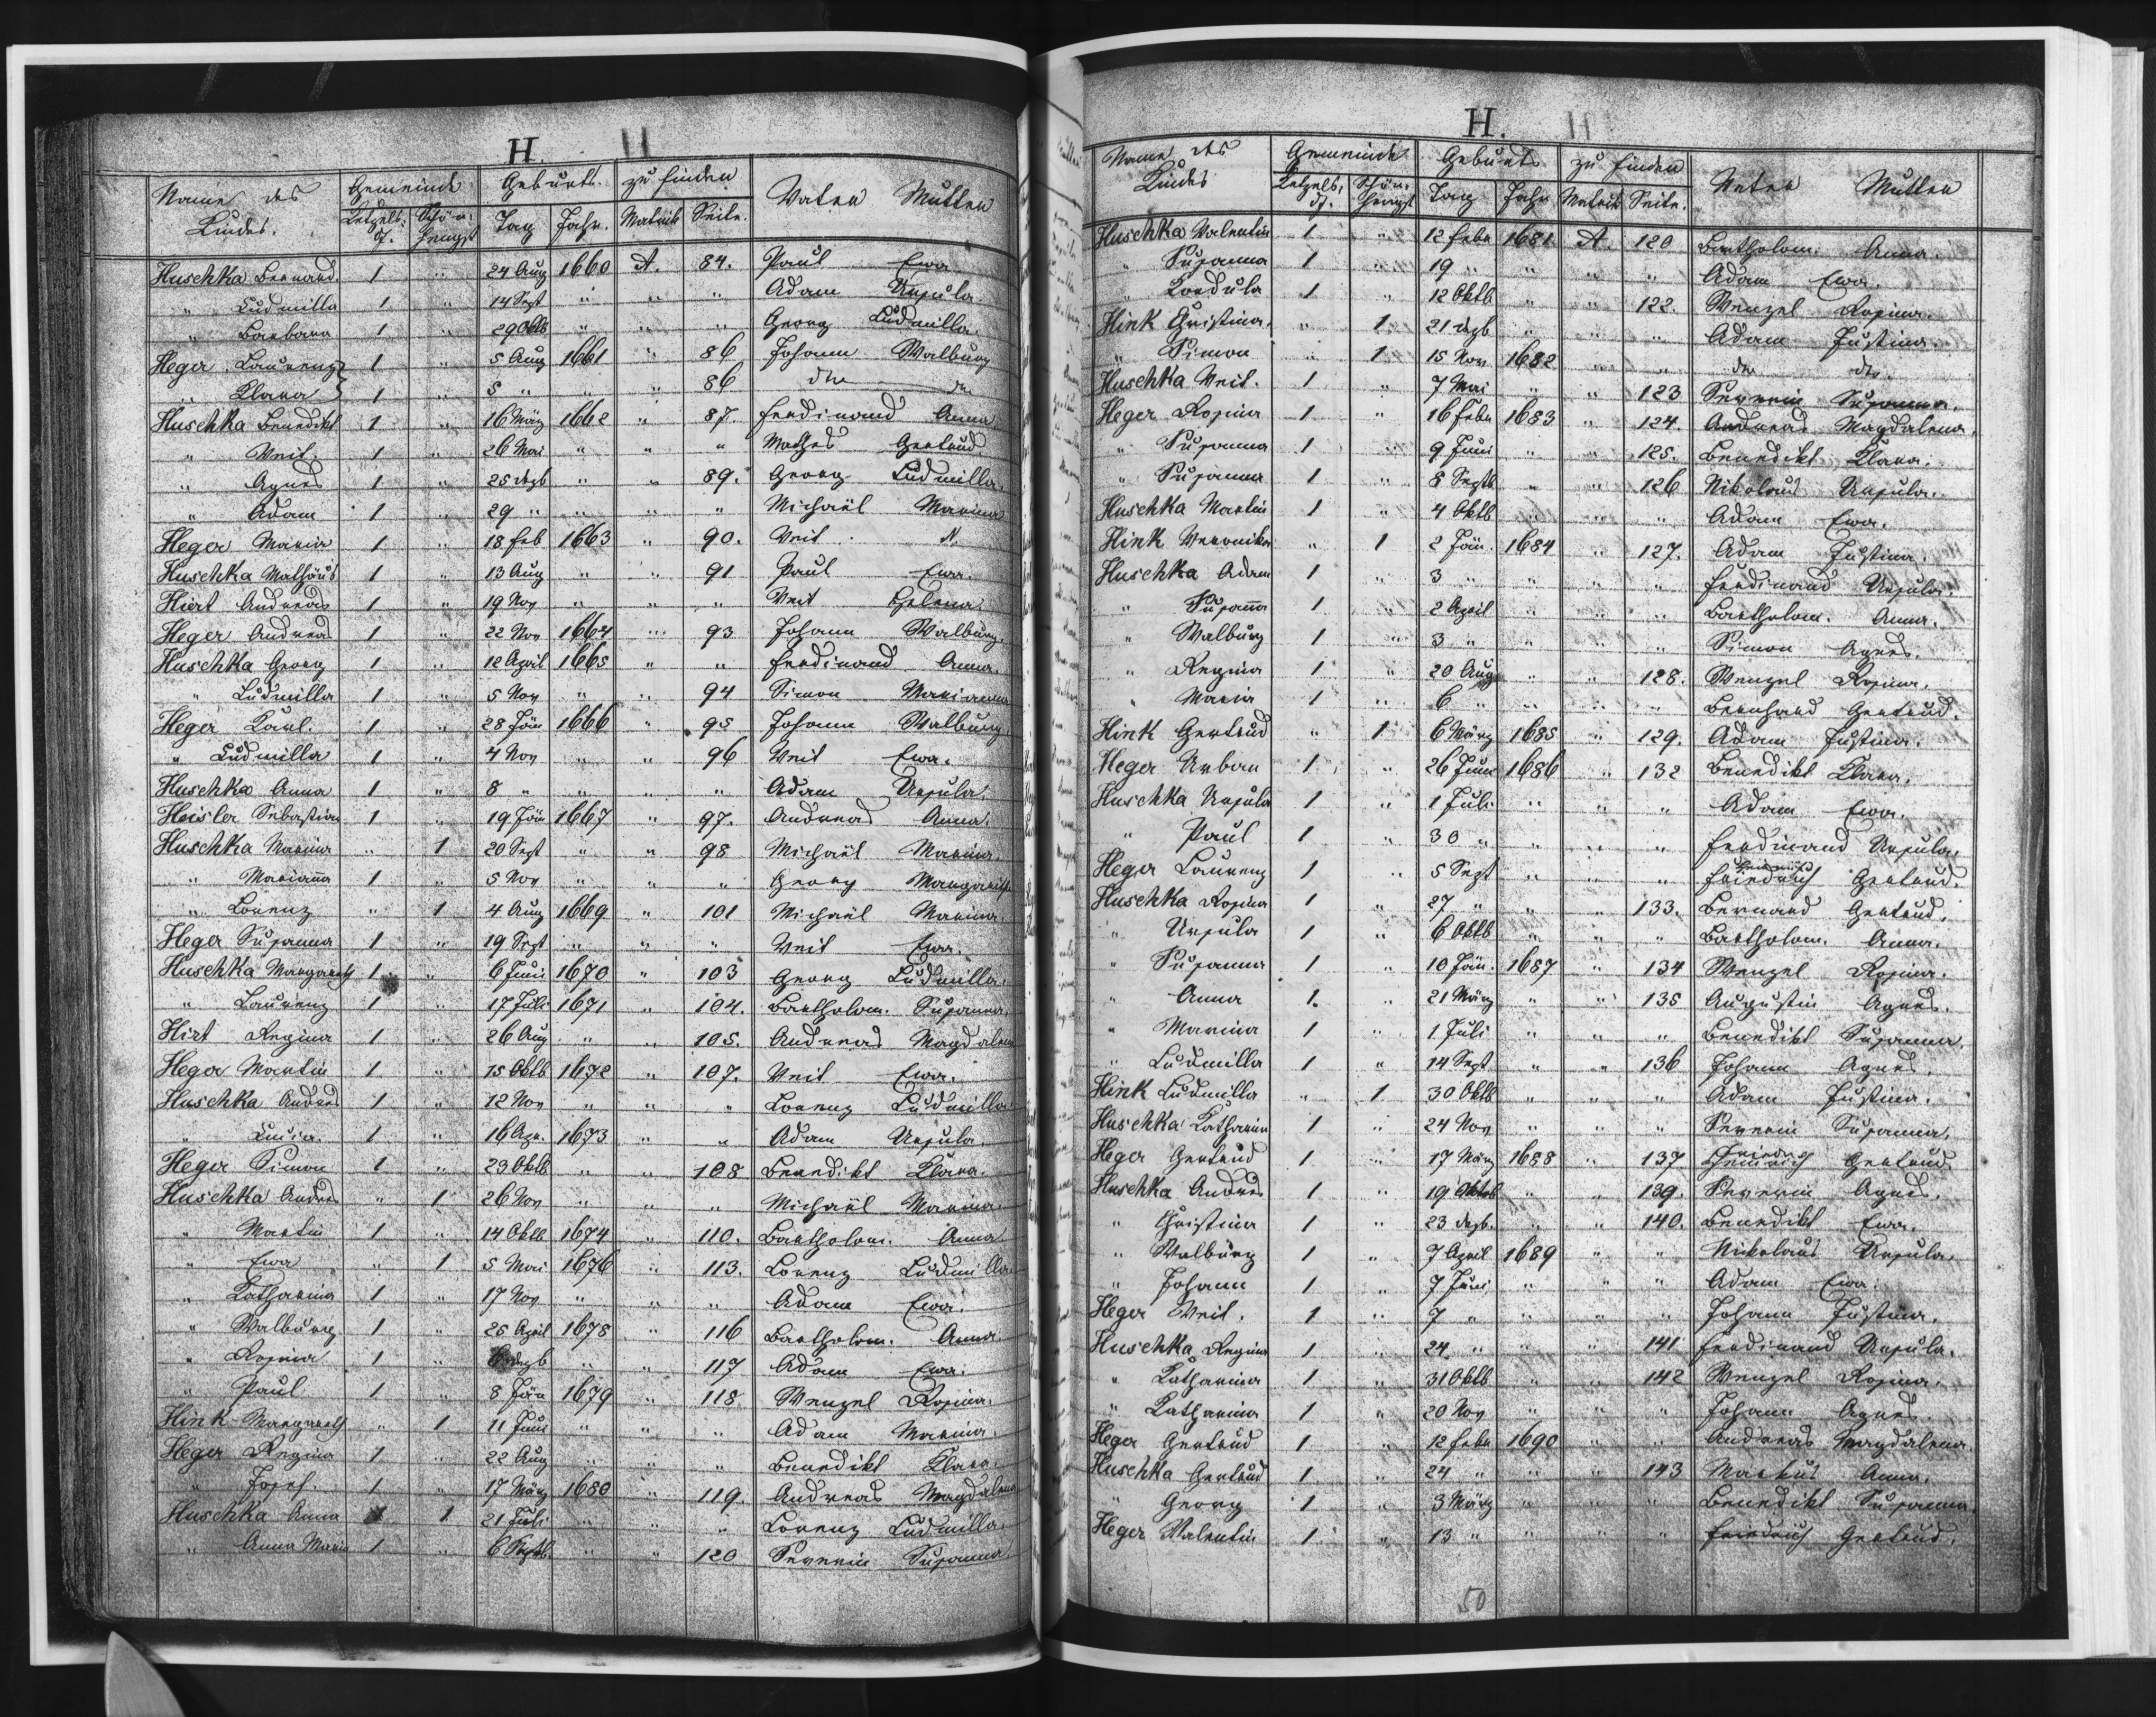 H.
Name des Kindes. Gemeinde Geburts. zu finden Vater Mutter
Letzels- d. Schön- hengst Tag Jahr. Matrik Seite.
Huschka Bernard. 1 " 24 Aug 1660 A. 84. Paul Ewa.
" Ludmilla 1 " 14 Sept " " " Adam Ursula.
" Barbara 1 " 29 Oktb " " " Georg Ludmilla.
Heger Laurenz 1 " 5 Aug 1661 " 86 Johann Walburg
" Klara 1 " 5 " " " 86 dto dto
Huschka Benedikt 1 " 16 März 1662 " 87. Ferdinand Anna
" Veit. 1 " 26 Mai " " " Mathes Gertrud
" Agnes 1 " 25 dezb " " 89. Georg Ludmilla.
" Adam 1 " 29 " " " " Michaël Marina
Heger Maria 1 " 18 feb 1663 " 90. Veit N.
Huschka Mathäus 1 " 13 Aug " " 91 Paul Ewa.
Hirt Andreas 1 " 19 Nov " " " Veit Helena.
Heger Andreas 1 " 22 Nov 1664 " 93 Johann Walburg.
Huschka Georg 1 " 12 April 1665 " " Ferdinand Anna.
" Ludmilla 1 " 5 Nov " " 94 Simon Marianna
Heger Paul. 1 " 28 Jän 1666 " 95 Johann Walburg
" Ludmilla 1 " 4 Nov " " 96 Veit Ewa.
Huschka Anna 1 " 8 " " " " Adam Ursula.
Heisler Sebastian 1 " 19 Jän 1667 " 97. Andreas Anna.
Huschka Marina " 1 20 Sept " " 98 Michaël Marina.
" Marianna 1 " 5 Nov " " " Georg Margareth
" Lorenz " 1 4 Aug 1669 " 101 Michaël Marina
Heger Susanna 1 " 19 Sept " " " Veit Ewa.
Huschka Margareth 1 " 6 Juni 1670 " 103 Georg Ludmilla.
" Laurenz 1 " 17 Juli 1671 " 104. Bartholom. Susanna.
Hirt Regina 1 " 26 Aug " " 105. Andreas Magdalena
Heger Martin 1 " 15 Oktb 1672 " 107. Veit Ewa.
Huschka Andreas 1 " 12 Nov " " " Lorenz Ludmilla
" Lucia. 1 " 16 Apr. 1673 " " Adam Ursula.
Heger Simon 1 " 23 Oktb " " 108 Benedikt Klara.
Huschka Andreas " 1 26 Nov " " " Michaël Marina.
" Martin 1 " 14 Oktb 1674 " 110. Bartholom. Anna
" Ewa " 1 5 Mai 1676 " 113. Lorenz Ludmilla
" Katharina 1 " 17 Nov " " " Adam Ewa.
" Walburg 1 " 25 April 1678 " 116 Bartholom. Anna.
" Rosina 1 " 6 dezb " " 117 Adam Ewa.
" Paul 1 " 8 Jän 1679 " 118 Wenzel Rosina.
Hink Margareth " 1 11 Juni " " " Adam Marina.
Heger Regina 1 " 22 Aug " " " Benedikt Klara.
" Josef. 1 " 17 März 1680 " 119. Andreas Magdalena
Huschka Anna 1 21 Juli " " " Lorenz Ludmilla.
" Anna Maria 1 " 6 Septb. " " 120 Severin Susanna
H.
Name des Kindes Gemeinde Geburts zu finden Vater Mutter
Letzels- d. Schön- hengst Tag Jahr Matrik Seite.
Huschka Valentin 1 " 12 febr 1681 A. 120 Bartholom. Anna.
" Susanna 1 " 19 " " " " Adam Ewa.
" Kordula 1 " 12 Oktb " " 122. Wenzel Rosina.
Hink Christina. " 1 21 dezb " " " Adam Justina.
" Simon " 1 15 Nov 1682 " " dto dto.
Huschka Veit. 1 " 7 Mai " " 123 Severin Susanna.
Heger Rosina 1 " 16 febr 1683 " 124. Andreas Magdalena.
" Susanna 1 " 9 Juni " " 125. Benedikt Klara.
" Susanna 1 " 8 Septb " " 126 Nikolaus Ursula.
Huschka Martin 1 " 4 Oktb " " " Adam Ewa.
Hink Veronika " 1 2 Jän. 1684 " 127. Adam Justina.
Huschka Adam 1 " 3 " " " " Ferdinand Ursula.
" Susanna 1 " 2 April " " " Bartholom. Anna.
" Walburg 1 " 3 " " " " Simon Agnes.
" Regina 1 " 20 Aug " " 128. Wenzel Rosina.
" Maria 1 " 6 " " " " Bernhard Gertrud.
Hink Gertrud " 1 6 März 1685 " 129. Adam Justina.
Heger Urban 1 " 26 Juni 1686 " 132 Benedikt Klara.
Huschka Ursula 1 " 1 Juli " " " Adam Ewa.
" Paul 1 " 30 " " " " Ferdinand Ursula.
Heger Laurenz 1 " 5 Sept " " " Friedrich Gertrud.
Huschka Rosina 1 " 27 " " " 133. Bernard Gertrud.
" Ursula 1 " 6 Oktb " " " Bartholom. Anna.
" Susanna 1 " 10 Jän. 1687 " 134 Wenzel Rosina.
" Anna 1. " 21 März " " 135 Augustin Agnes.
" Marina 1 " 1 Juli " " " Benedikt Susanna.
" Ludmilla 1 " 14 Sept " " 136 Johann Agnes.
Hink Ludmilla " 1 30 Oktb " " " Adam Justina.
Huschka Katharina 1 " 24 Nov " " " Severin Susanna.
Heger Gertrud 1 " 17 März 1688 " 137 Friedr Heinrich Gertrud
Huschka Andreas 1 " 19 Oktob " " 139. Severin Agnes.
" Christina 1 " 23 dezb. " " 140. Benedikt Ewa.
" Walburg 1 " 7 April 1689 " " Nikolaus Ursula.
" Johann 1 " 7 Juni " " " Adam Ewa.
Heger Veit. 1 " 7 " " " " Johann Justina.
Huschka Regina 1 " 24 " " " 141 Ferdinand Ursula.
" Katharina 1 " 31 Oktb " " 142 Wenzel Rosina.
" Katharina 1 " 20 Nov " " " Johann Agnes.
Heger Gertrud 1 " 12 febr 1690 " " Andreas Magdalena
Huschka Gertrud 1 " 24 " " " 143 Markus Anna.
" Georg 1 " 3 März " " " Benedikt Susanna
Heger Valentin 1 " 13 " " " " Friedrich Gertrud.
50